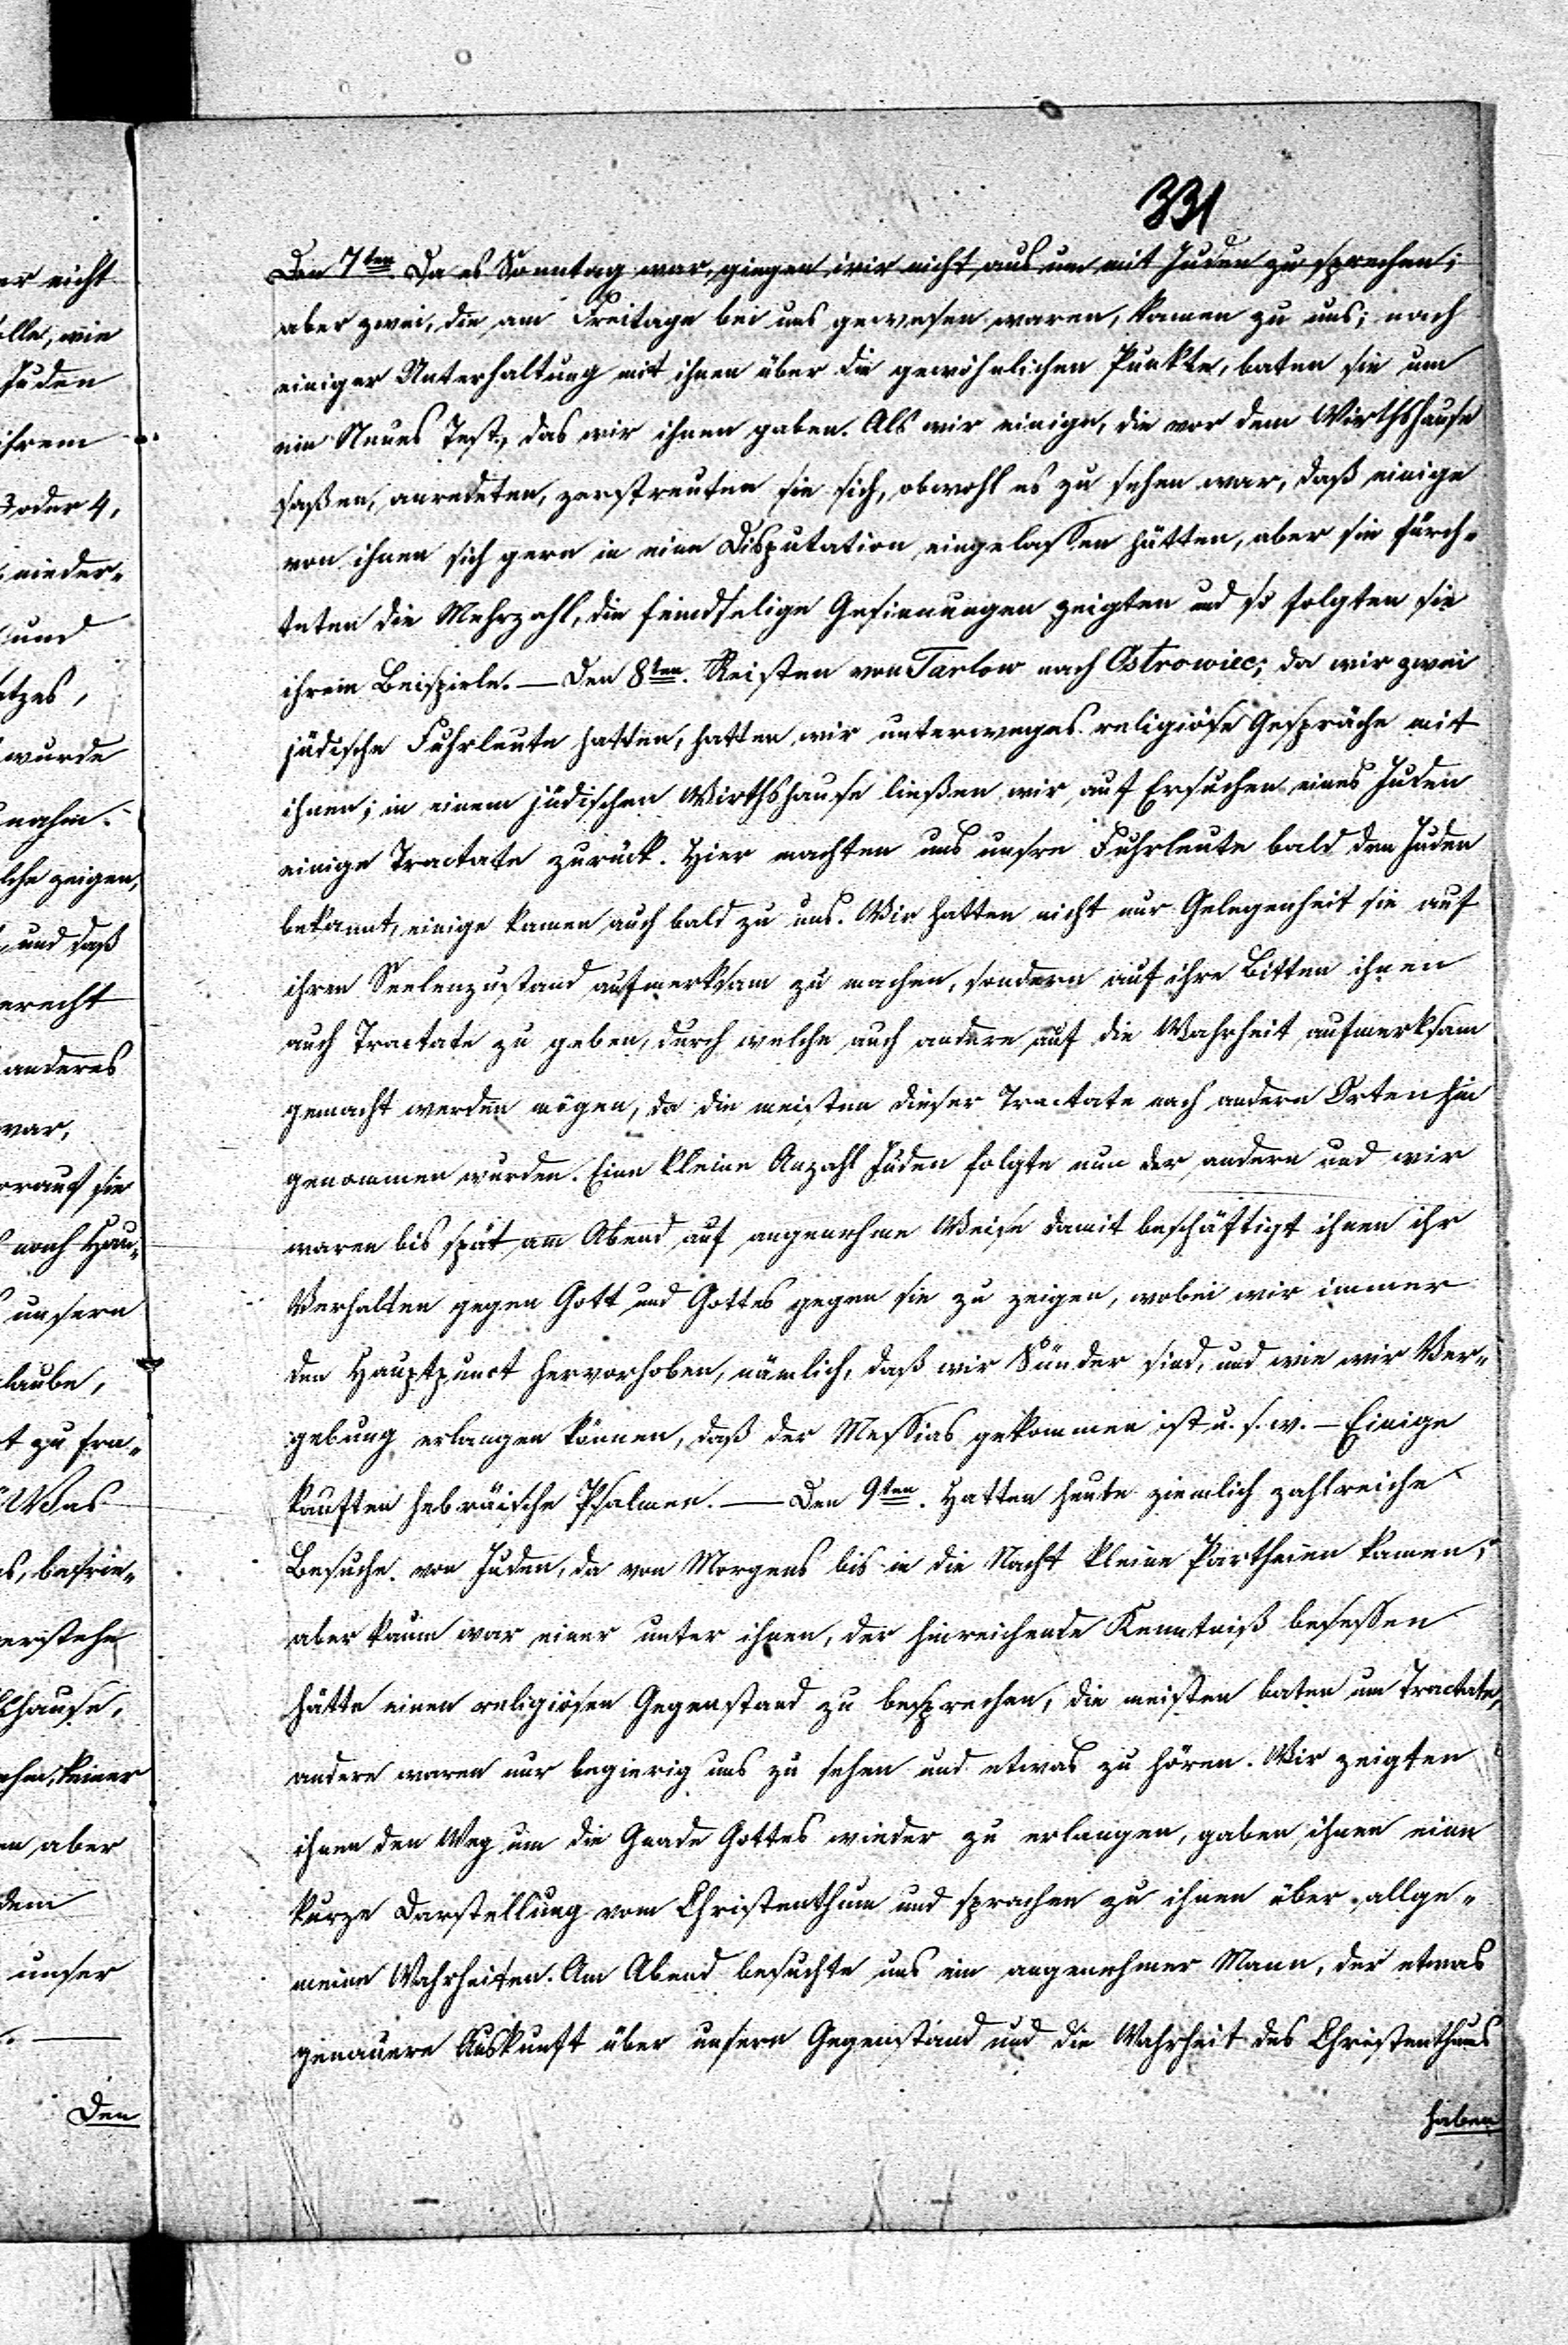 331
Den 7ten. Da es Sonntag war, giengen wir nicht aus um mit Juden zu sprechen;
aber zwei, die am Freitage bei uns gewesen waren, kamen zu uns; nach
einiger Unterhaltung mit ihnen über die gewöhnlichen Punkte, baten sie um
ein Neues Test., das wir ihnen gaben. Als wir einige, die vor dem Wirthshause
saßen, anredeten, zerstreuten sie sich, obwohl es zu sehen war, daß einige
von ihnen sich gern in eine Disputation eingelassen hätten, aber sie fürch-
teten die Mehrzahl, die feindselige Gesinnungen zeigten und so folgten sie
ihrem Beispiele. — Den 8ten. Reisten von Tarlow nach Ostrowiec; da wir zwei
jüdische Fuhrleute hatten, hatten wir unterweges religiöse Gespräche mit
ihnen; in einem jüdischen Wirthshause ließen wir auf Ersuchen eines Juden
einige Tractate zurück. Hier machten uns unsre Fuhrleute bald den Juden
bekannt, einige kamen auch bald zu uns. Wir hatten nicht nur Gelegenheit sie auf
ihren Seelenzustand aufmerksam zu machen, sondern auf ihre Bitten ihnen
auch Tractate zu geben, durch welche auch andere auf die Wahrheit aufmerksam
gemacht werden mögen, da die meisten dieser Tractate nach andern Orten hin
genommen wurden. Eine kleine Anzahl Juden folgte nun der andern und wir
waren bis spät am Abend auf angenehme Weise damit beschäftigt ihnen ihr
Verhalten gegen Gott und Gottes gegen sie zu zeigen, wobei wir immer
den Hauptpunct hervorhoben, nämlich, daß wir Sünder sind, und wie wir Ver-
gebung erlangen können, daß der Messias gekommen ist u. s. w. — Einige
kauften hebräische Psalmen. — Den 9ten. Hatten heute ziemlich zahlreiche
Besuche von Juden, da von Morgens bis in die Nacht kleine Partheien kamen;
aber kaum war einer unter ihnen, der hinreichende Kenntniß besessen
hätte einen religiösen Gegenstand zu besprechen, die meisten baten um Tractate,
andere waren nur begierig uns zu sehen und etwas zu hören. Wir zeigten
ihnen den Weg um die Gnade Gottes wieder zu erlangen, gaben ihnen eine
kurze Darstellung vom Christenthum und sprachen zu ihnen über allge-
meine Wahrheiten. Am Abend besuchte uns ein angenehmer Mann, der etwas
genauere Auskunft über unsern Gegenstand und die Wahrheit des Christenthums
haben
er nicht
olle, wie
Juden
ihrem
3 oder 4,
nieder-
und
atzes,
wurde
nahm.
lche zeigen,
und daß
erecht
anderes
war,
orauf sie
nach Hau-
unsern
laube,
t zu fra-
Was
verstehe
aber
dem
unser
Den